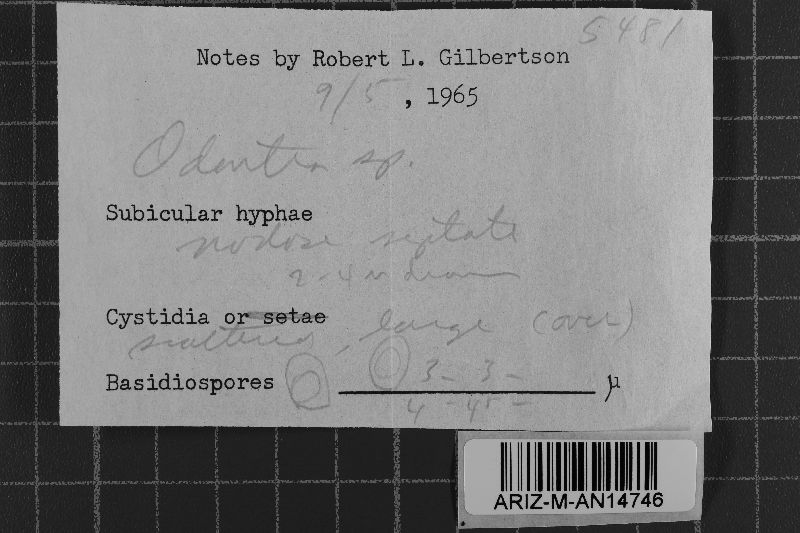 5481
Notes by Robert L. Gilbertson
9/5, 1965
Odontia sp.
Subicular hyphae
nodose septate
2-4 μ diam
Cystidia or setae
scattered, large (over)
Basidiospores 3- 3- μ
4 -45 -
ARIZ-M-AN14746